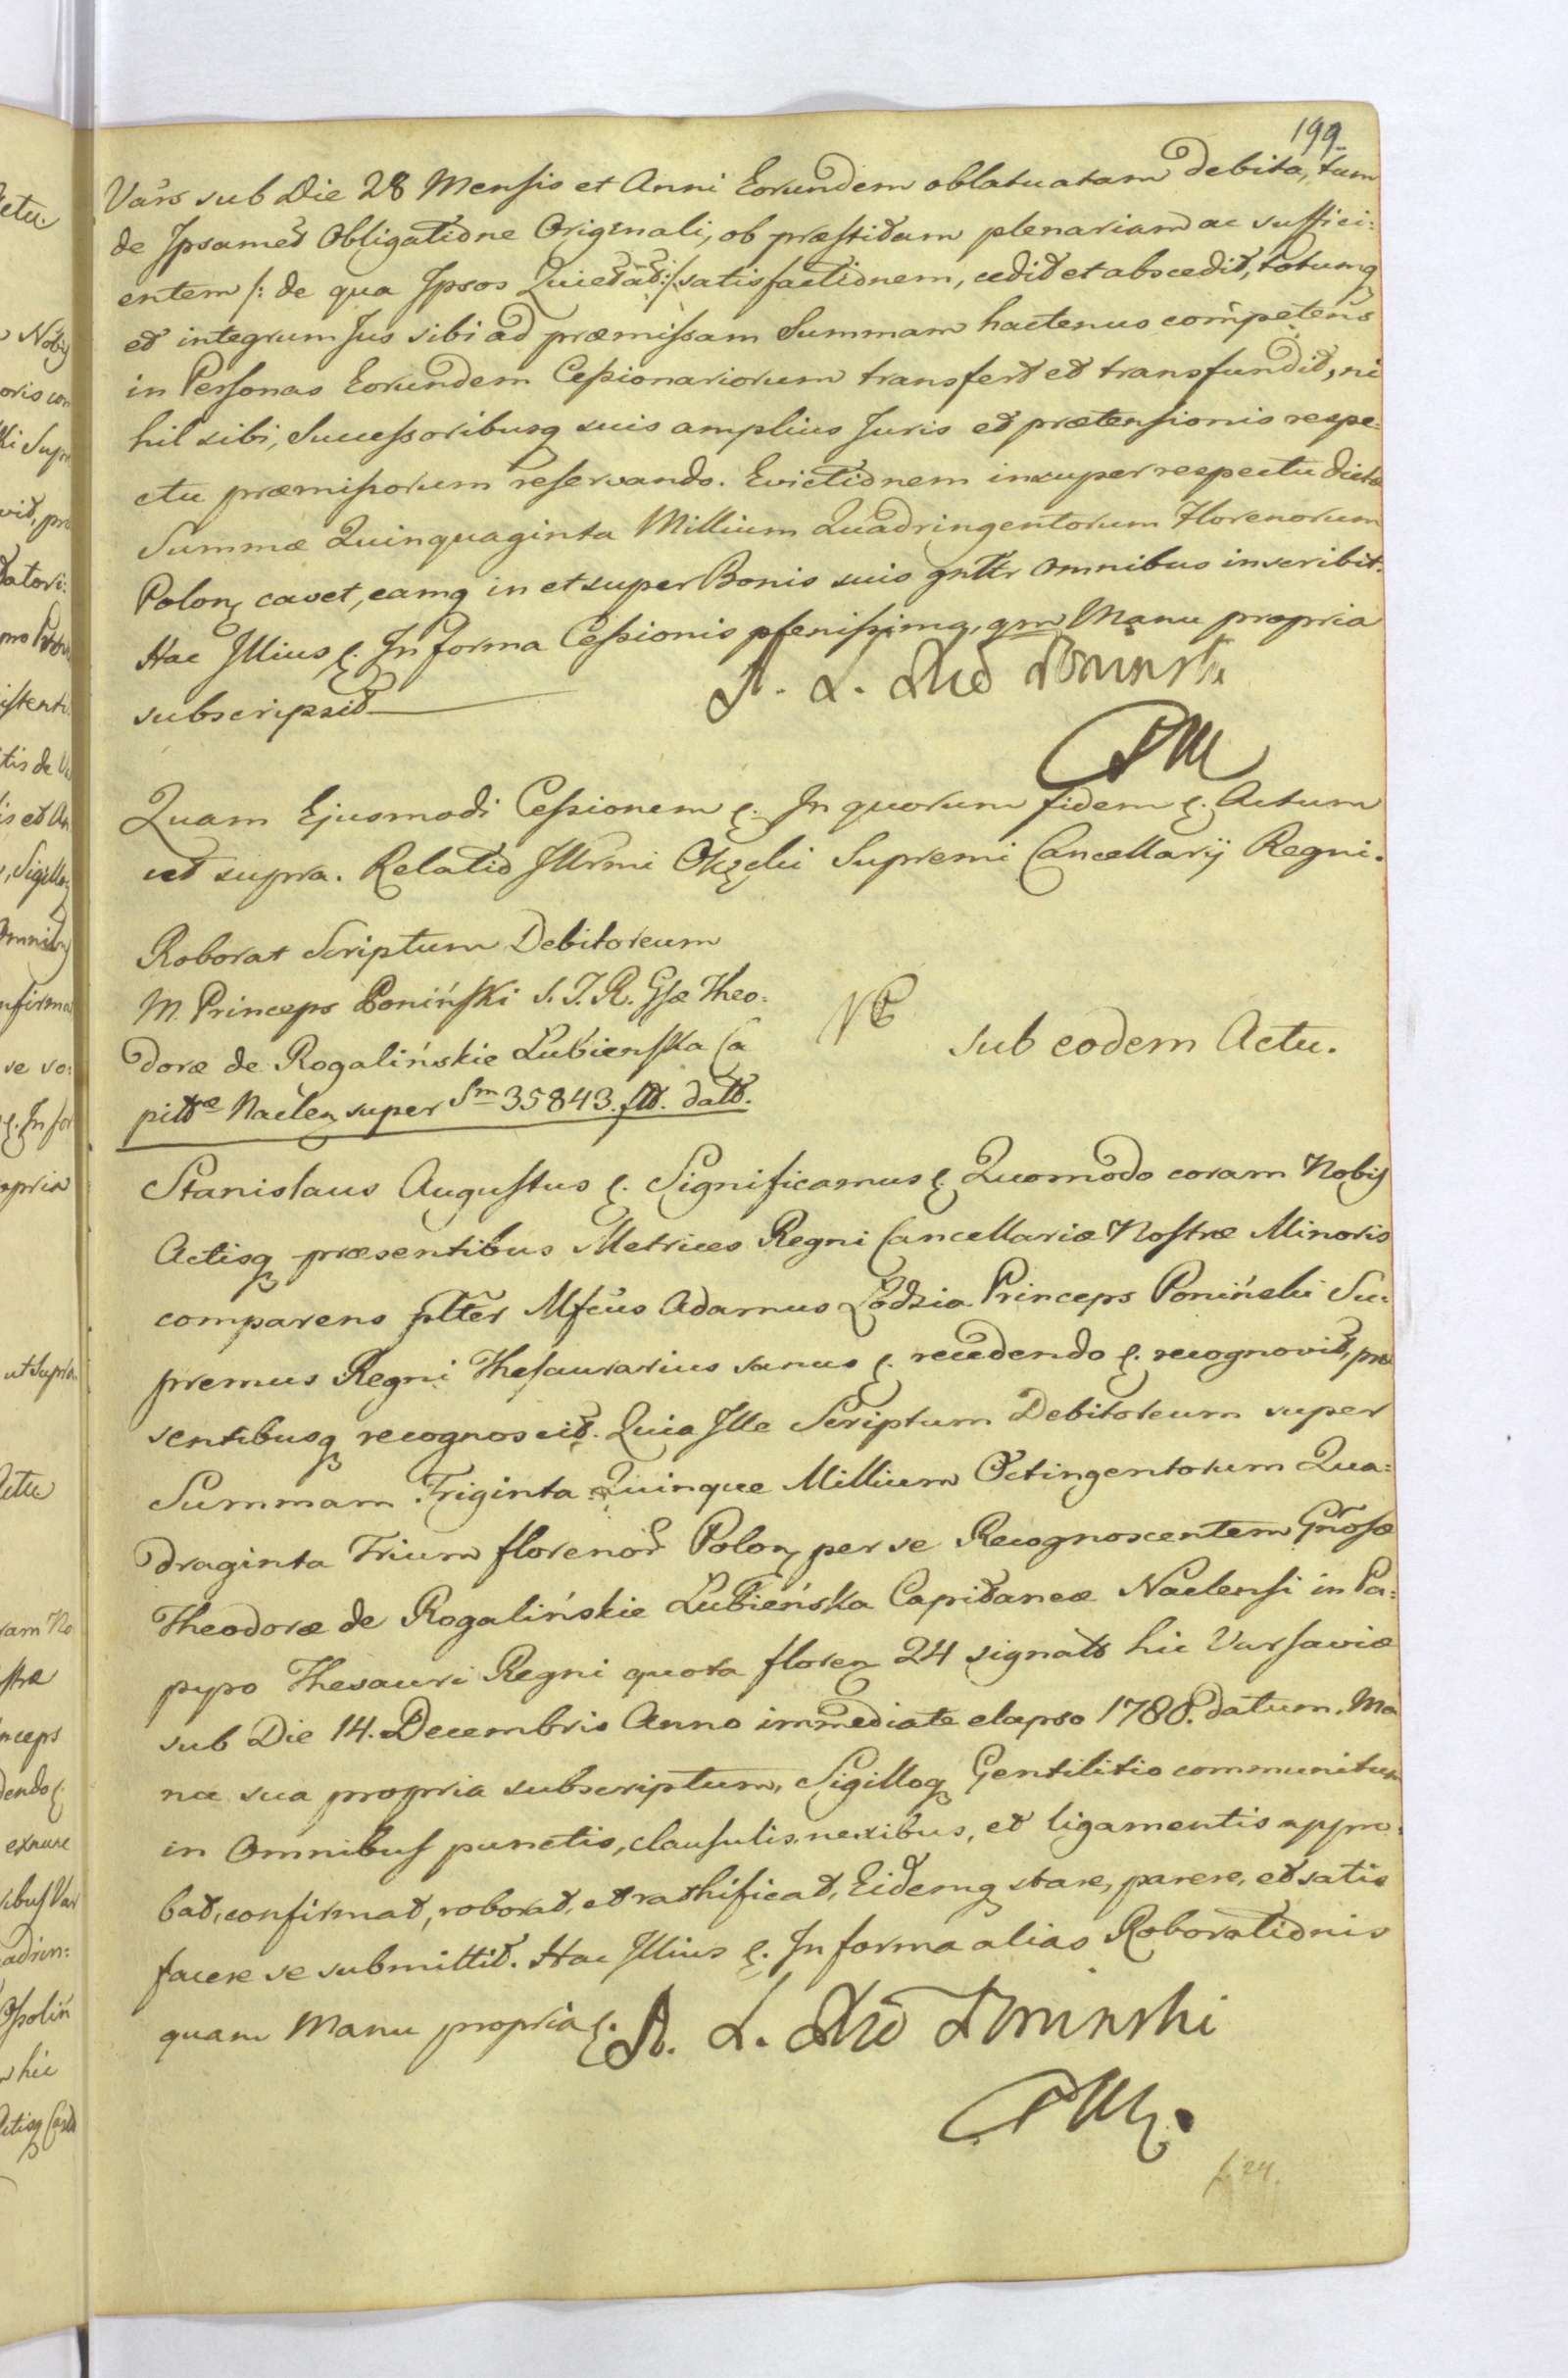 199
Vars sub Die 28 Mensis et Anni Eorundem oblatuatam debita, tum
de Ipsamet Obligatione Originali, ob præstitam plenariam ac suffici:
entem /: de qua Ipsos Quietat :/ satisfactionem, cedit et abscedit, totumq
et integrum Jus sibi ad præmissam Summam hactenus competens
in Personas Eorundem Cessionariorum transfert et transfundit, ni
hil sibi, Successoribusq suis amplius Juris et prætensionis respe:
ctu præmissorum reservando. Evictionem insuper respectu dictæ
Summæ Quinquaginta Millium Quadringentorum Florenorum
Polon cavet, eamq in et super Bonis suis gnltr Omnibus inscribit.
Hac Illius &. In forma Cessionis plenissima, qm Manu propria
subscripsit
A. L. Xże Poninski
Quam Ejusmodi Cessionem &. In quorum fidem &. Actum
ut supra. Relatio Illrmi Okęcki Supremi Cancellarij Regni.
Roborat Scriptum Debitoreum
M. Princeps Poniński S. T. R. Gsæ Theo:
doræ de Rogalińskie Łubienska Ca
pittæ Naclen super Sm 35843. flt. datt.
sub eodem Actu.
Stanislaus Augustus &. Significamus &. Quomodo coram Nobis
Actisq præsentibus Metrices Regni Cancellariæ Nostræ Minoris
comparens plter Mfcus Adamus Łodzia Princeps Poniński Su:
premus Regni Thesaurarius sanus &. recedendo &. recognovit, præ
sentibusq recognoscit. Quia Ille Scriptum Debitoreum super
Summam Triginta Quinque Millium Octingentorum Qua:
draginta Trium florenor Polon per se Recognoscentem Gnosæ
Theodoræ de Rogalińskie Łubieńska Capitaneæ Naclensi in Pa:
pyro Thesauri Regni quota floren 24 signato hic Varsaviæ
sub Die 14. Decembris Anno immediate elapso 1788. datum. Ma
nu sua propria subscriptum, Sigilloq Gentilitio communitum
in Omnibus punctis, clausulis, nexibus, et ligamentis appro:
bat, confirmat, roborat, et rathificat, Eidemq stare, parere, et satis
facere se submittit. Hac Illius &. In forma alias Roborationis
quam Manu propria &.
A. L. Xże Poninski